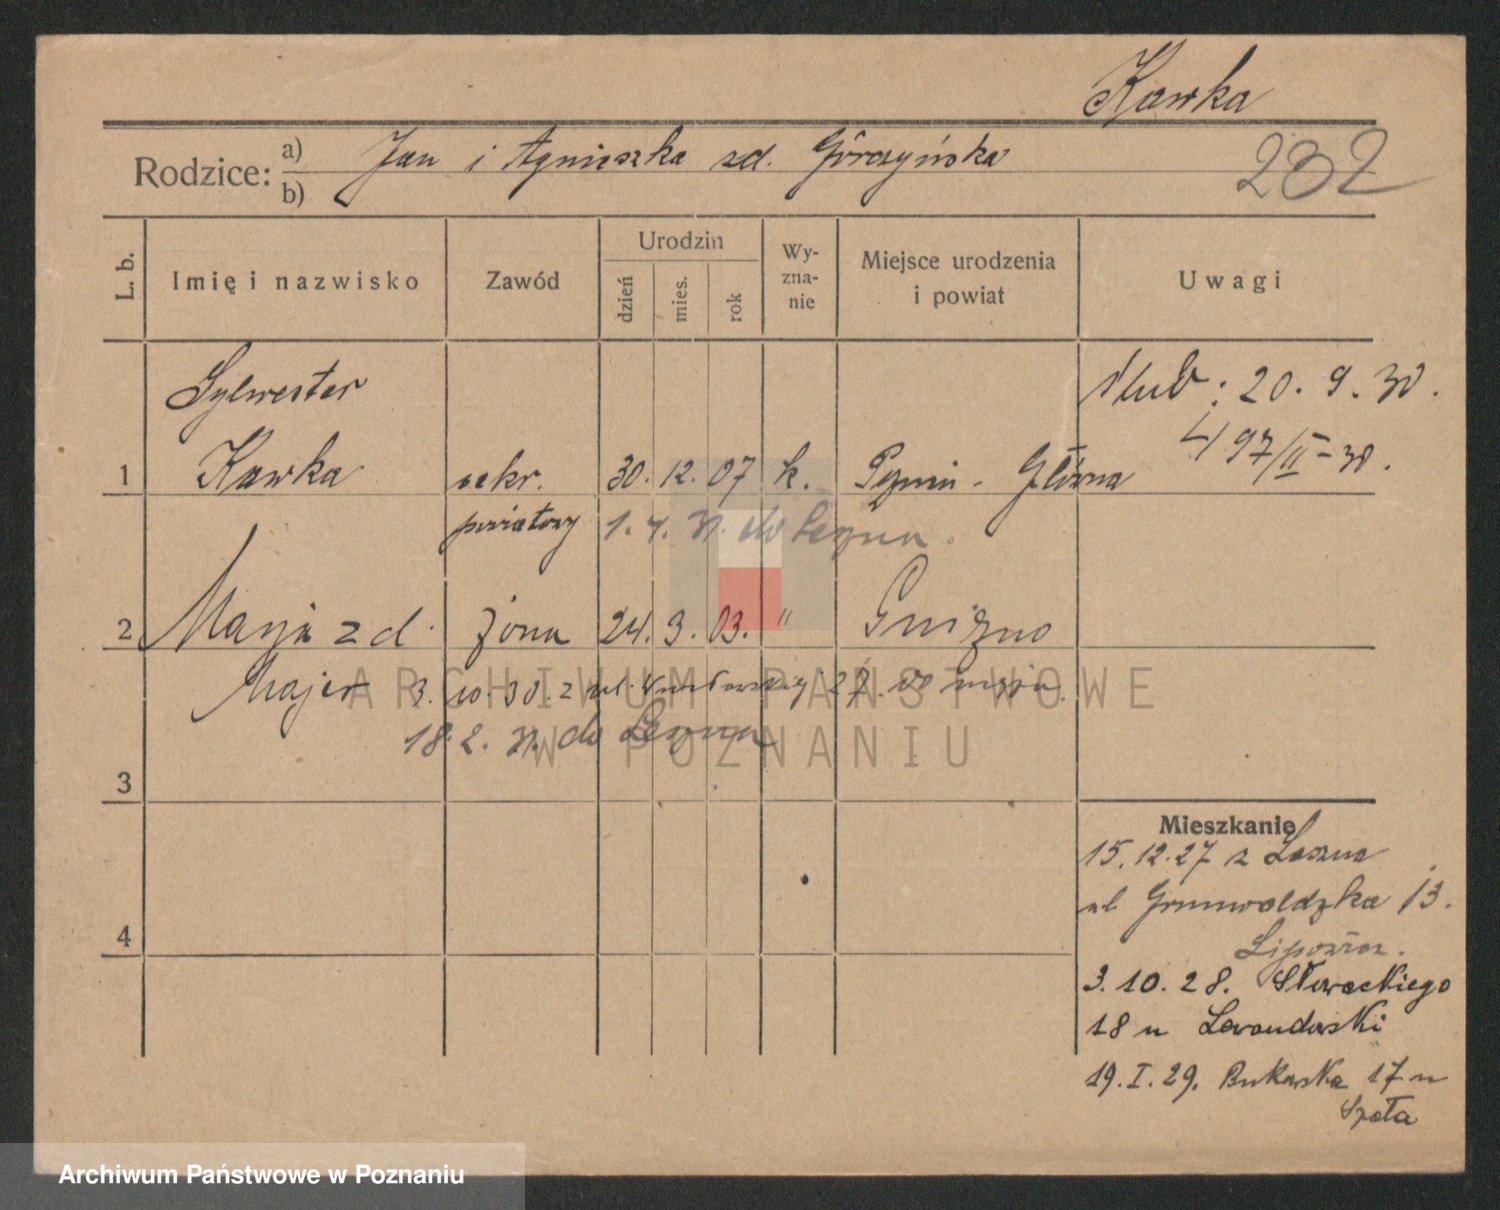 Kawka
Rodzice: a) Jan i Agnieszka zd. Górczyńska
b)
232
L. b.
Imię i nazwisko
Zawód
Urodzin
dzień
mies.
rok
Wy-
zna-
nie
Miejsce urodzenia
i powiat
Uwagi
Sylwester
1 Kawka sekr. 30. 12. 07 k. Pozń - Główna
powiatowy 1. 4. 31. do Leszna.
ślub: 20. 9. 30.
497/II-30.
2 Marja zd. żona 24. 3. 03. " Gniezno
Majer 3. 10. 30. z ul. 27. do męża.
18. 2. 31. do Leszna
3
4
Mieszkanie
15.12.27 z Leszna
ul Grunwaldzka 13.
3. 10. 28. Słowackiego
18 u Lewandowski
19. I. 29. Bukowska 17 u
Szała
ARCHIWUM PAŃSTWOWE
W POZNANIU
Archiwum Państwowe w Poznaniu